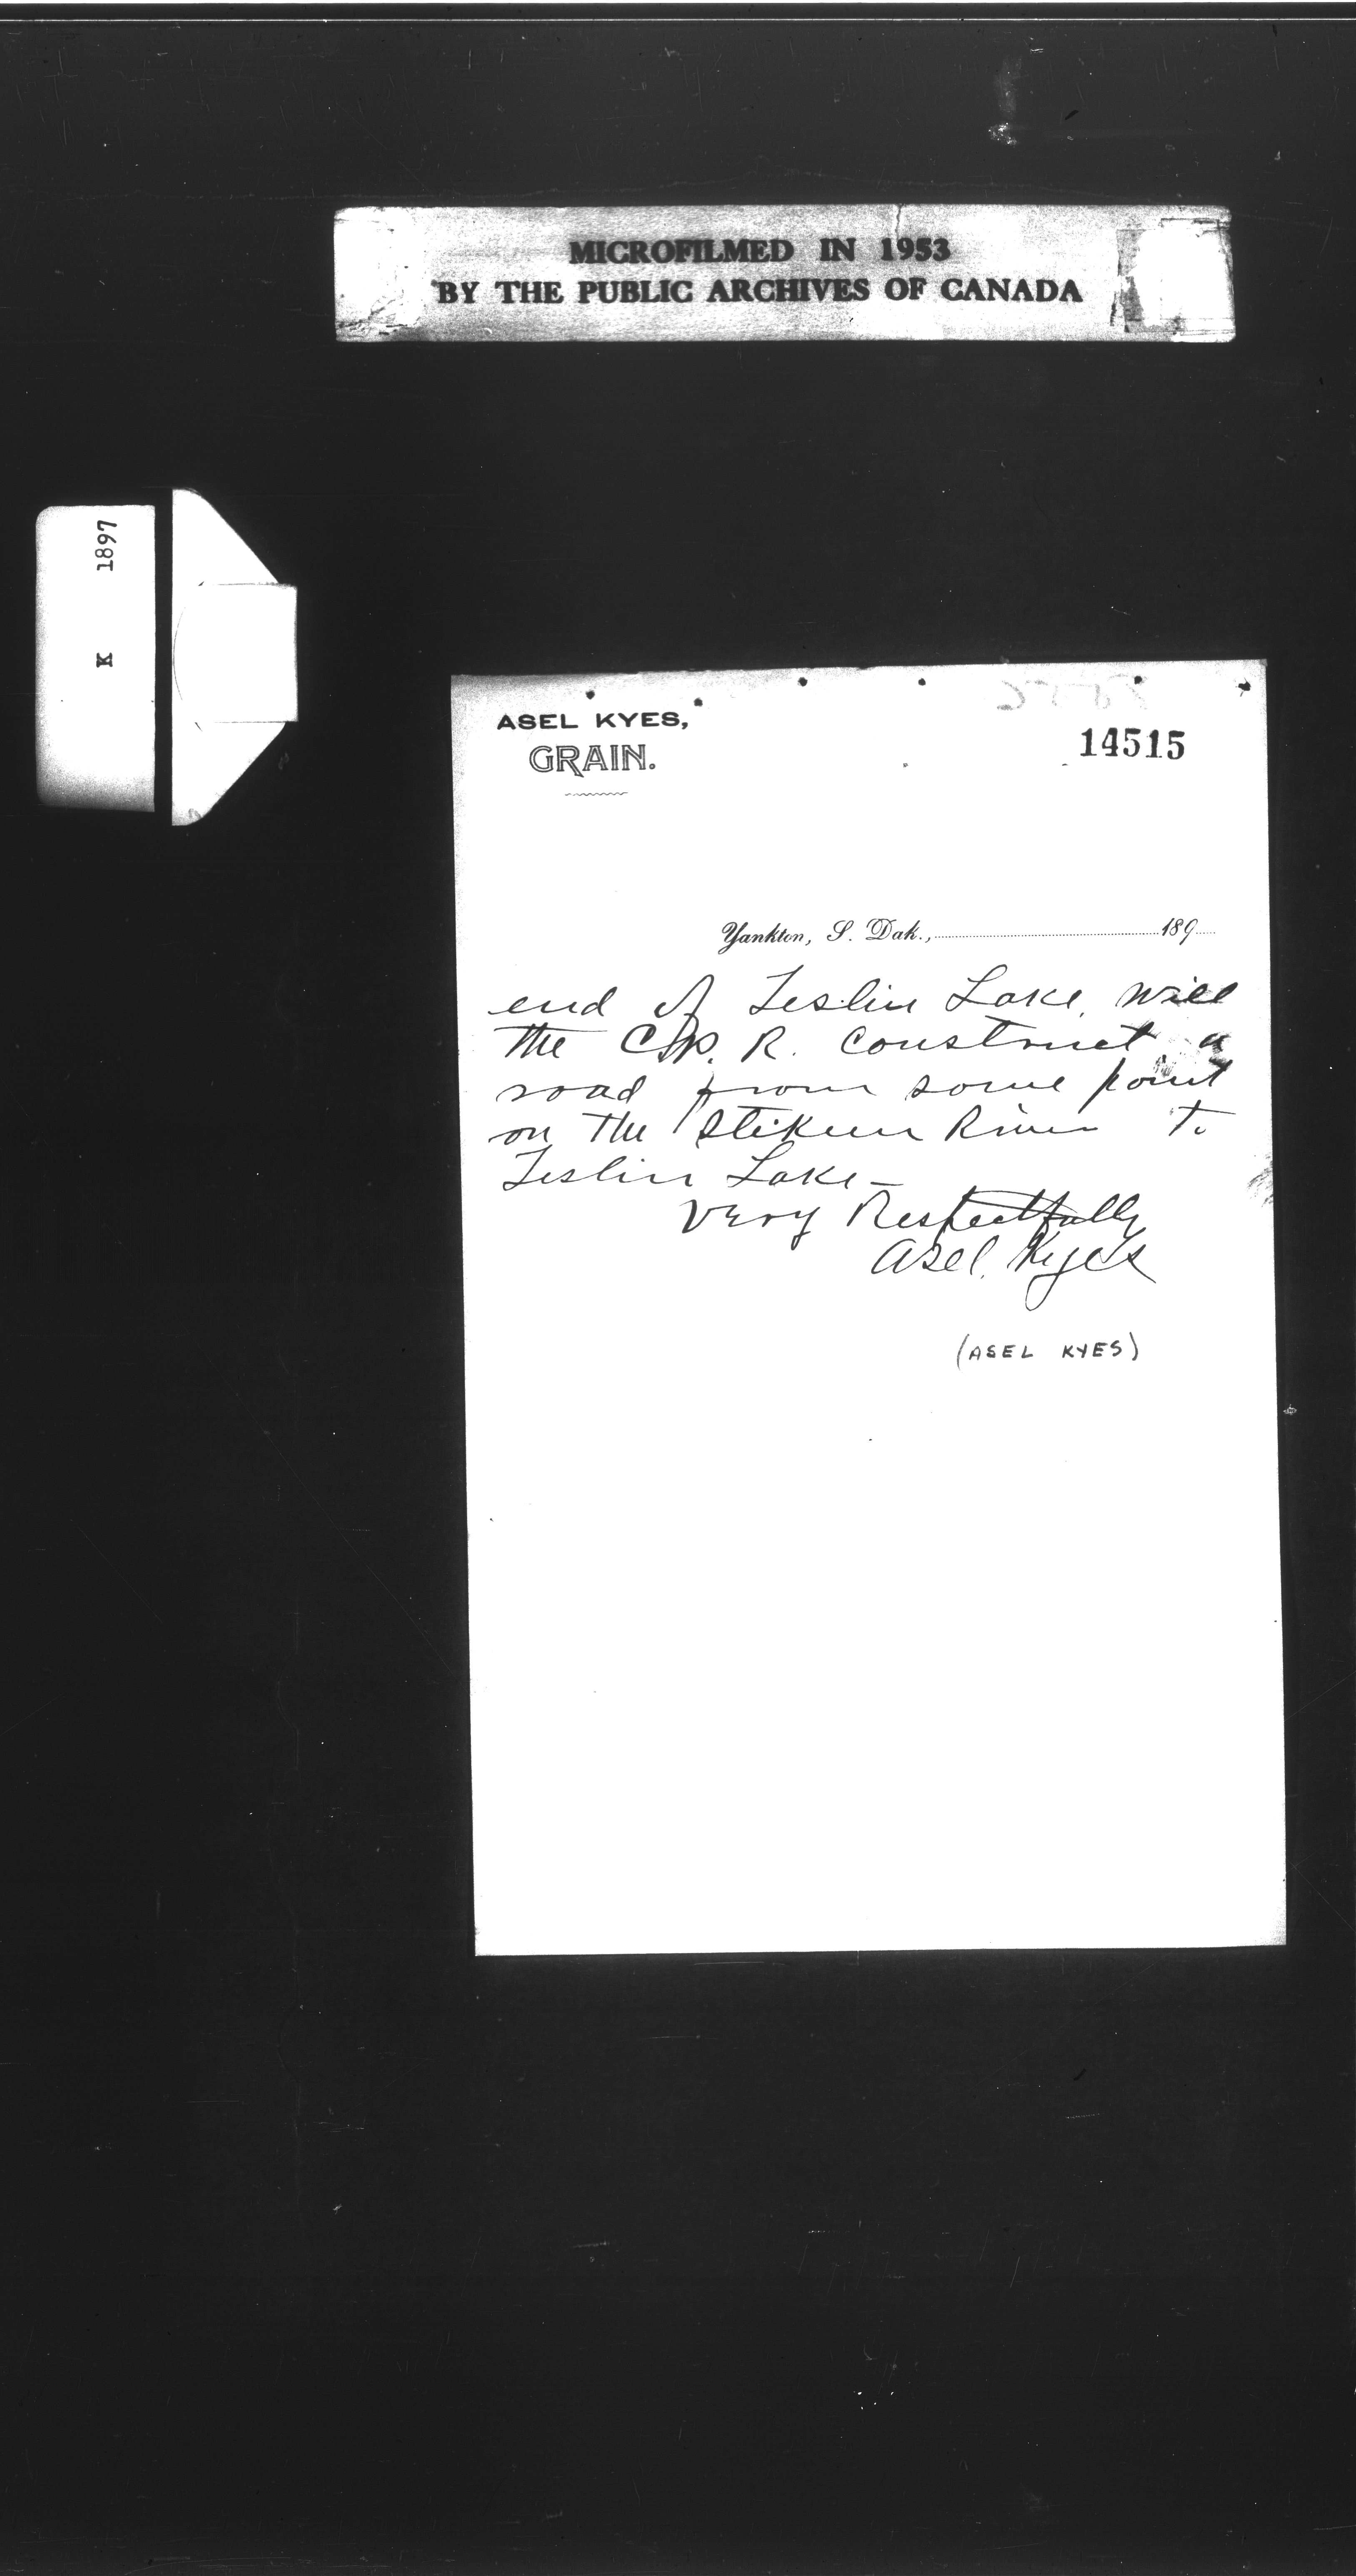 MICROFILMED IN 1953
BY THE PUBLIC ARCHIVES OF CANADA
K 1897
ASEL KYES,
GRAIN.
14515
Yankton, S. Dak., 189
end of Teslin Lake, will
the C.P. R. construct a
road from some point
on the Stikeen River to
Teslin Lake -
Very Respectfully
Asel. Kyes
(ASEL KYES)